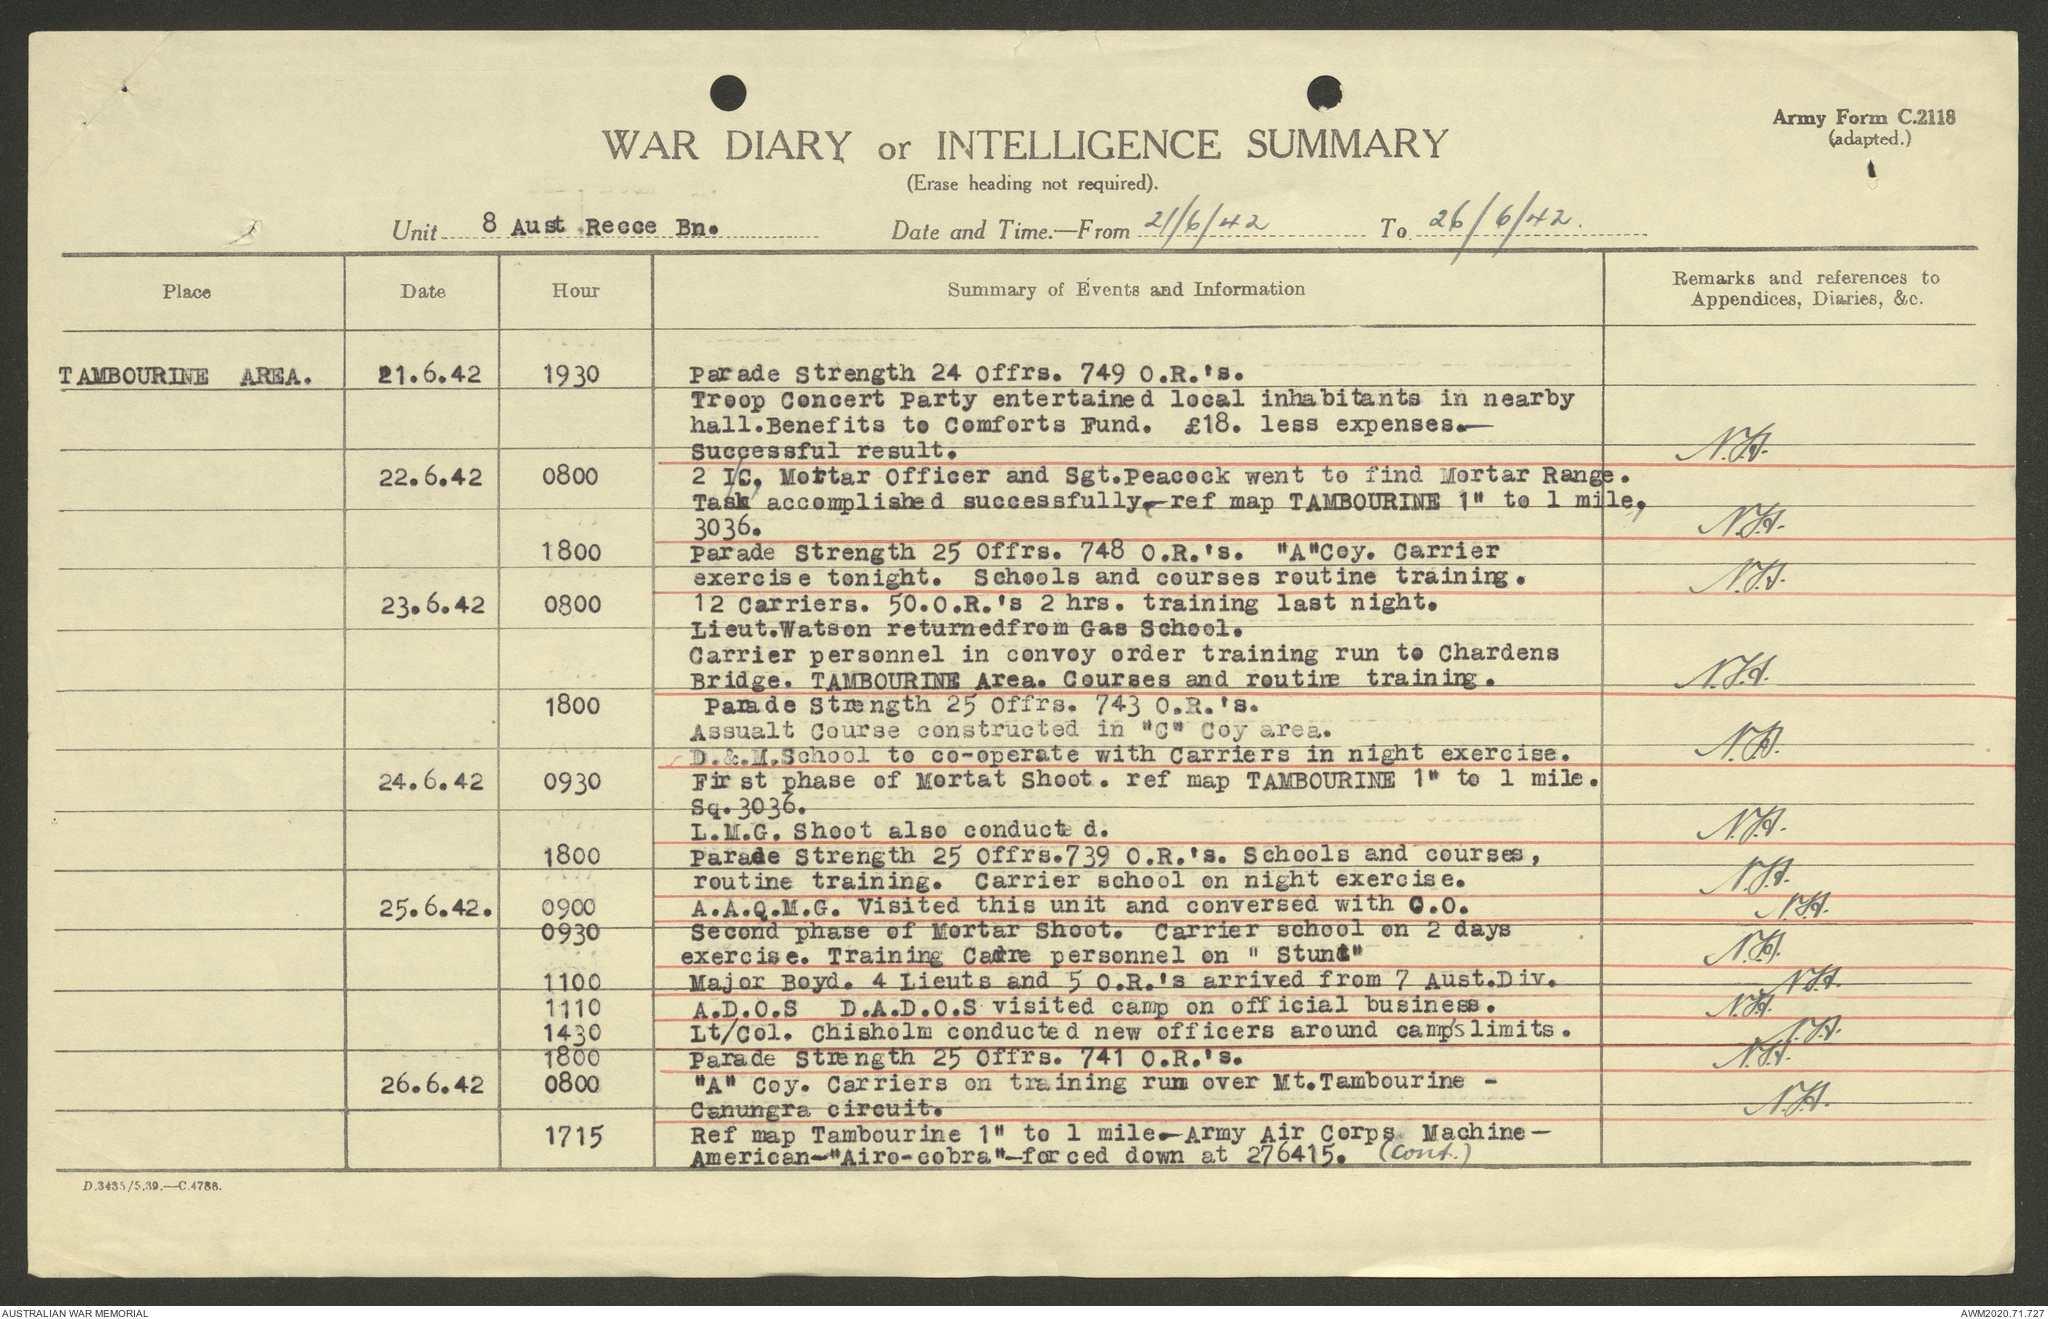 Army Form C.2118
(adapted.)
WAR DIARY or INTELLIGENCE SUMMARY
(Erase heading not required).
Unit 8 Aust Recce Bn. Date and Time.—From 21/6/42 To 26/6/42.
Place Date Hour Summary of Events and Information Remarks and references to
Appendices, Diaries, &c.
TAMBOURINE AREA. 21.6.42 1930 Parade Strength 24 Offrs. 749 O.R.'s.
Troop Concert Party entertained local inhabitants in nearby
hall.Benefits to Comforts Fund. £18. less expenses.—
Successful result. N.H.
22.6.42 0800 2 I/C. Mortar Officer and Sgt.Peacock went to find Mortar Range.
Task accomplished successfully.—ref map TAMBOURINE 1" to 1 mile,
3036. N.H.
1800 Parade Strength 25 Offrs. 748 O.R.'s. "A"Coy. Carrier
exercise tonight. Schools and courses routine training. N.H.
23.6.42 0800 12 Carriers. 50.O.R.'s 2 hrs. training last night.
Lieut.Watson returnedfrom Gas School.
Carrier personnel in convoy order training run to Chardens
Bridge. TAMBOURINE Area. Courses and routine training. N.H.
1800 Parade Strength 25 Offrs. 743 O.R.'s.
Assualt Course constructed in "C" Coy area.
D.&.M.School to co-operate with Carriers in night exercise. N.H.
24.6.42 0930 First phase of Mortat Shoot. ref map TAMBOURINE 1" to 1 mile.
Sq.3036.
L.M.G. Shoot also conducted. N.H.
1800 Parade Strength 25 Offrs.739 O.R.'s. Schools and courses,
routine training. Carrier school on night exercise. N.H.
25.6.42. 0900 A.A.Q.M.G. Visited this unit and conversed with C.O. N.H.
0930 Second phase of Mortar Shoot. Carrier school on 2 days
exercise. Training Cadre personnel on " Stunt" N.H.
1100 Major Boyd. 4 Lieuts and 5 O.R.'s arrived from 7 Aust.Div. N.H.
1110 A.D.O.S D.A.D.O.S visited camp on official business. N.H.
1430 Lt/Col. Chisholm conducted new officers around camp's limits. N.H.
1800 Parade Strength 25 Offrs. 741 O.R.'s. N.H.
26.6.42 0800 "A" Coy. Carriers on training run over Mt.Tambourine -
Canungra circuit. N.H.
1715 Ref map Tambourine 1" to 1 mile.—Army Air Corps Machine—
American—"Airo-cobra"—forced down at 276415. (Cont.)
D.3435/5.39.—C.4786.
AUSTRALIAN WAR MEMORIAL AWM2020.71.727